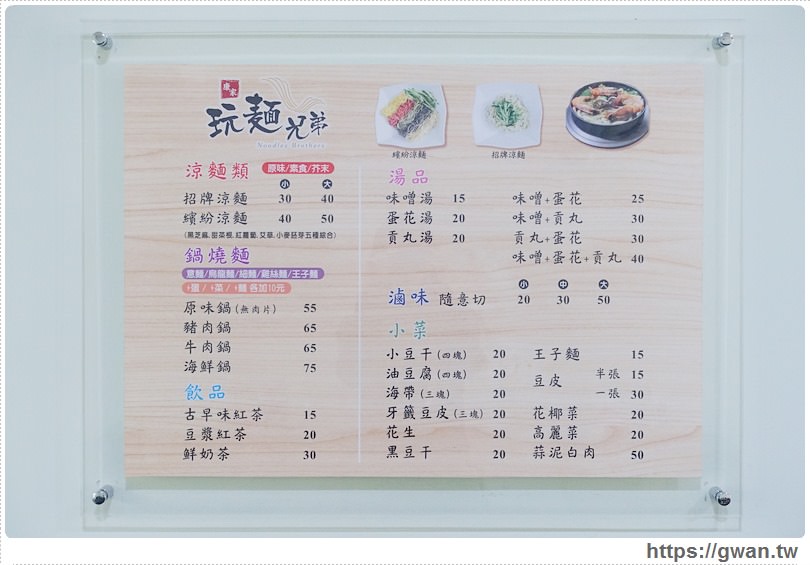 康家
玩麵兄弟
Noodles Brothers
繽紛涼麵
招牌涼麵
涼麵類 原味/素食/芥末
小 大
招牌涼麵 30 40
繽紛涼麵 40 50
(黑芝麻,甜菜根,紅蘿蔔,艾草,小麥胚芽五種綜合)
鍋燒麵
意麵/烏龍麵/細麵/雞絲麵/王子麵
+蛋/+菜/+麵 各加10元
原味鍋(無肉片) 55
豬肉鍋 65
牛肉鍋 65
海鮮鍋 75
飲品
古早味紅茶 15
豆漿紅茶 20
鮮奶茶 30
湯品
味噌湯 15 味噌+蛋花 25
蛋花湯 20 味噌+貢丸 30
貢丸湯 20 貢丸+蛋花 30
味噌+蛋花+貢丸 40
小 中 大
滷味 隨意切 20 30 50
小菜
小豆干(四塊) 20 王子麵 15
油豆腐(四塊) 20 豆皮 半張 15
海帶(三塊) 20 一張 30
牙籤豆皮(三塊) 20 花椰菜 20
花生 20 高麗菜 20
黑豆干 20 蒜泥白肉 50
https://gwan.tw